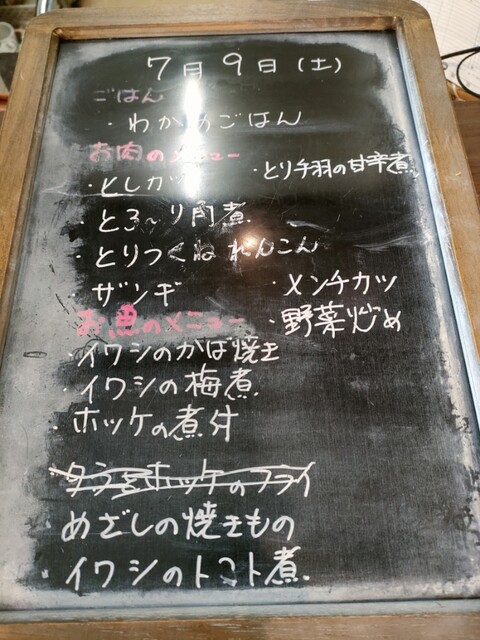 7月9日(土)
ごはん
・わかめごはん
お肉のメニュー
・とり手羽の甘辛煮
・としカツ
・とろ〜り角煮
・とりつくねれんこん
・ザンギ
・メンチカツ
・野菜炒め
お魚のメニュー
・イワシのかば焼き
・イワシの梅煮
・ホッケの煮付
タラ ホッケのフライ
・めざしの焼きもの
・イワシのトマト煮